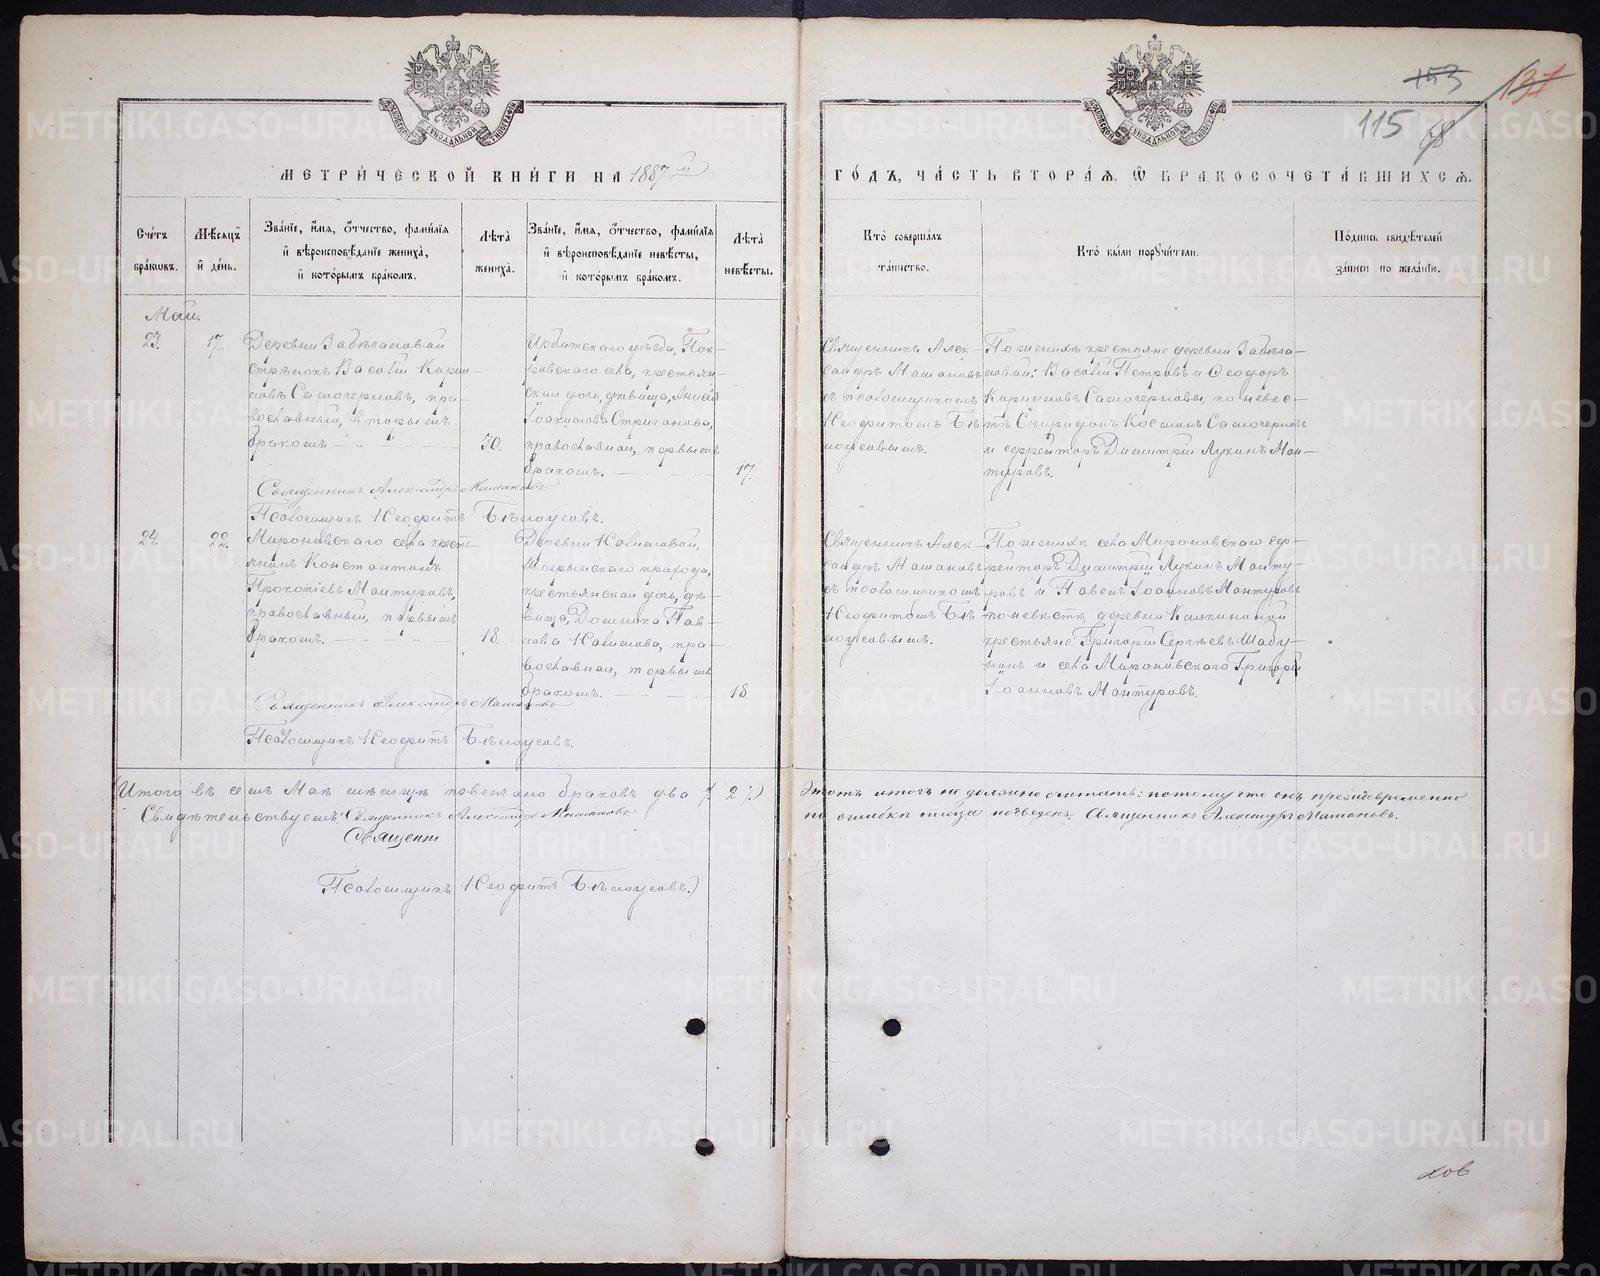 153 137
115 68
МЕТРИ́ЧЕСКОЙ КНИ́ГИ НА 1887й
ГО́ДЪ, ЧА́СТЬ ВТОРА́Я, Ѡ БРАКОСОЧЕТА́ВШИХСЯ.
Сче́тъ бра́ковъ.
Мѣ́сяцъ и де́нь.
Зва́нїе, и́мя, о́тчество, фами́лїя и вѣроисповѣ́данїе жениха̀, и кото́рымъ бра́комъ.
Лѣ́та жениха̀.
Зва́нїе, и́мя, о́тчество, фами́лїя и вѣроисповѣ́данїе невѣ́сты, и кото́рымъ бра́комъ.
Лѣ́та невѣ́сты.
Кто̀ соверша́лъ та́инство.
Кто̀ бы́ли поручи́тели.
По́дпись свидѣ́телей за́писи по жела́нїю.
Май.
23. 17.
Деревни
стрѣлокъ Васолій Кирил-
ловъ Самочерновъ, пра-
вославный, вторымъ
бракомъ — " —
30.
Ирбитскаго уѣзда, Пок-
ровскаго села, крестьян-
ская дочь, дѣвица, Анисія
Іоакимова Стриганова,
православная, первымъ
бракомъ. — " —
17.
Священникъ Алек-
сандръ Мошановъ
съ псаломщикомъ
Неофитомъ Бѣ-
лоусовымъ.
По женихѣ крестьяне деревни
Васолій Петровъ и Ѳеодоръ
Кирилловъ Самочерновы, по невѣс-
тѣ Спиридонъ Косминъ Самочерновъ
и ефрейторъ Димитрій Лукинъ Ман-
туровъ.
Священникъ Александръ Мошановъ
Псаломщикъ Неофитъ Бѣлоусовъ.
24. 22.
Мироновскаго села кресть-
янинъ Константинъ
Прокопіевъ Мантуровъ,
православный, первымъ
бракомъ. — " —
18.
Деревни
прихода,
крестьянская дочь, дѣ-
вица, Домника Пав-
лова
православная, первымъ
бракомъ. — " —
18
Священникъ Алек-
сандръ Мошановъ
съ псаломщикомъ
Неофитомъ Бѣ-
лоусовымъ.
По женихѣ села Мироновскаго еф-
рейторъ Димитрій Лукинъ Манту-
ровъ и Павелъ Іоанновъ Мантуровъ
по невѣстѣ деревни
крестьяне Григорій Сергѣевъ Шабу-
нинъ и села Мироновскаго Григорій
Іоанновъ Мантуровъ.
Священникъ Александръ Мошановъ
Псаломщикъ Неофитъ Бѣлоусовъ.
(Итого въ семъ Маѣ мѣсяцѣ повенчано браковъ два /. 2 /.)
Свидѣтельствуемъ: Священникъ Александръ Мошановъ
Священн
Псаломщикъ Неофитъ Бѣлоусовъ.)
Этотъ итогъ не должно считать: потому что онъ преждевременно
по ошибкѣ писца подведенъ. Священникъ Александръ Мошановъ.
хов